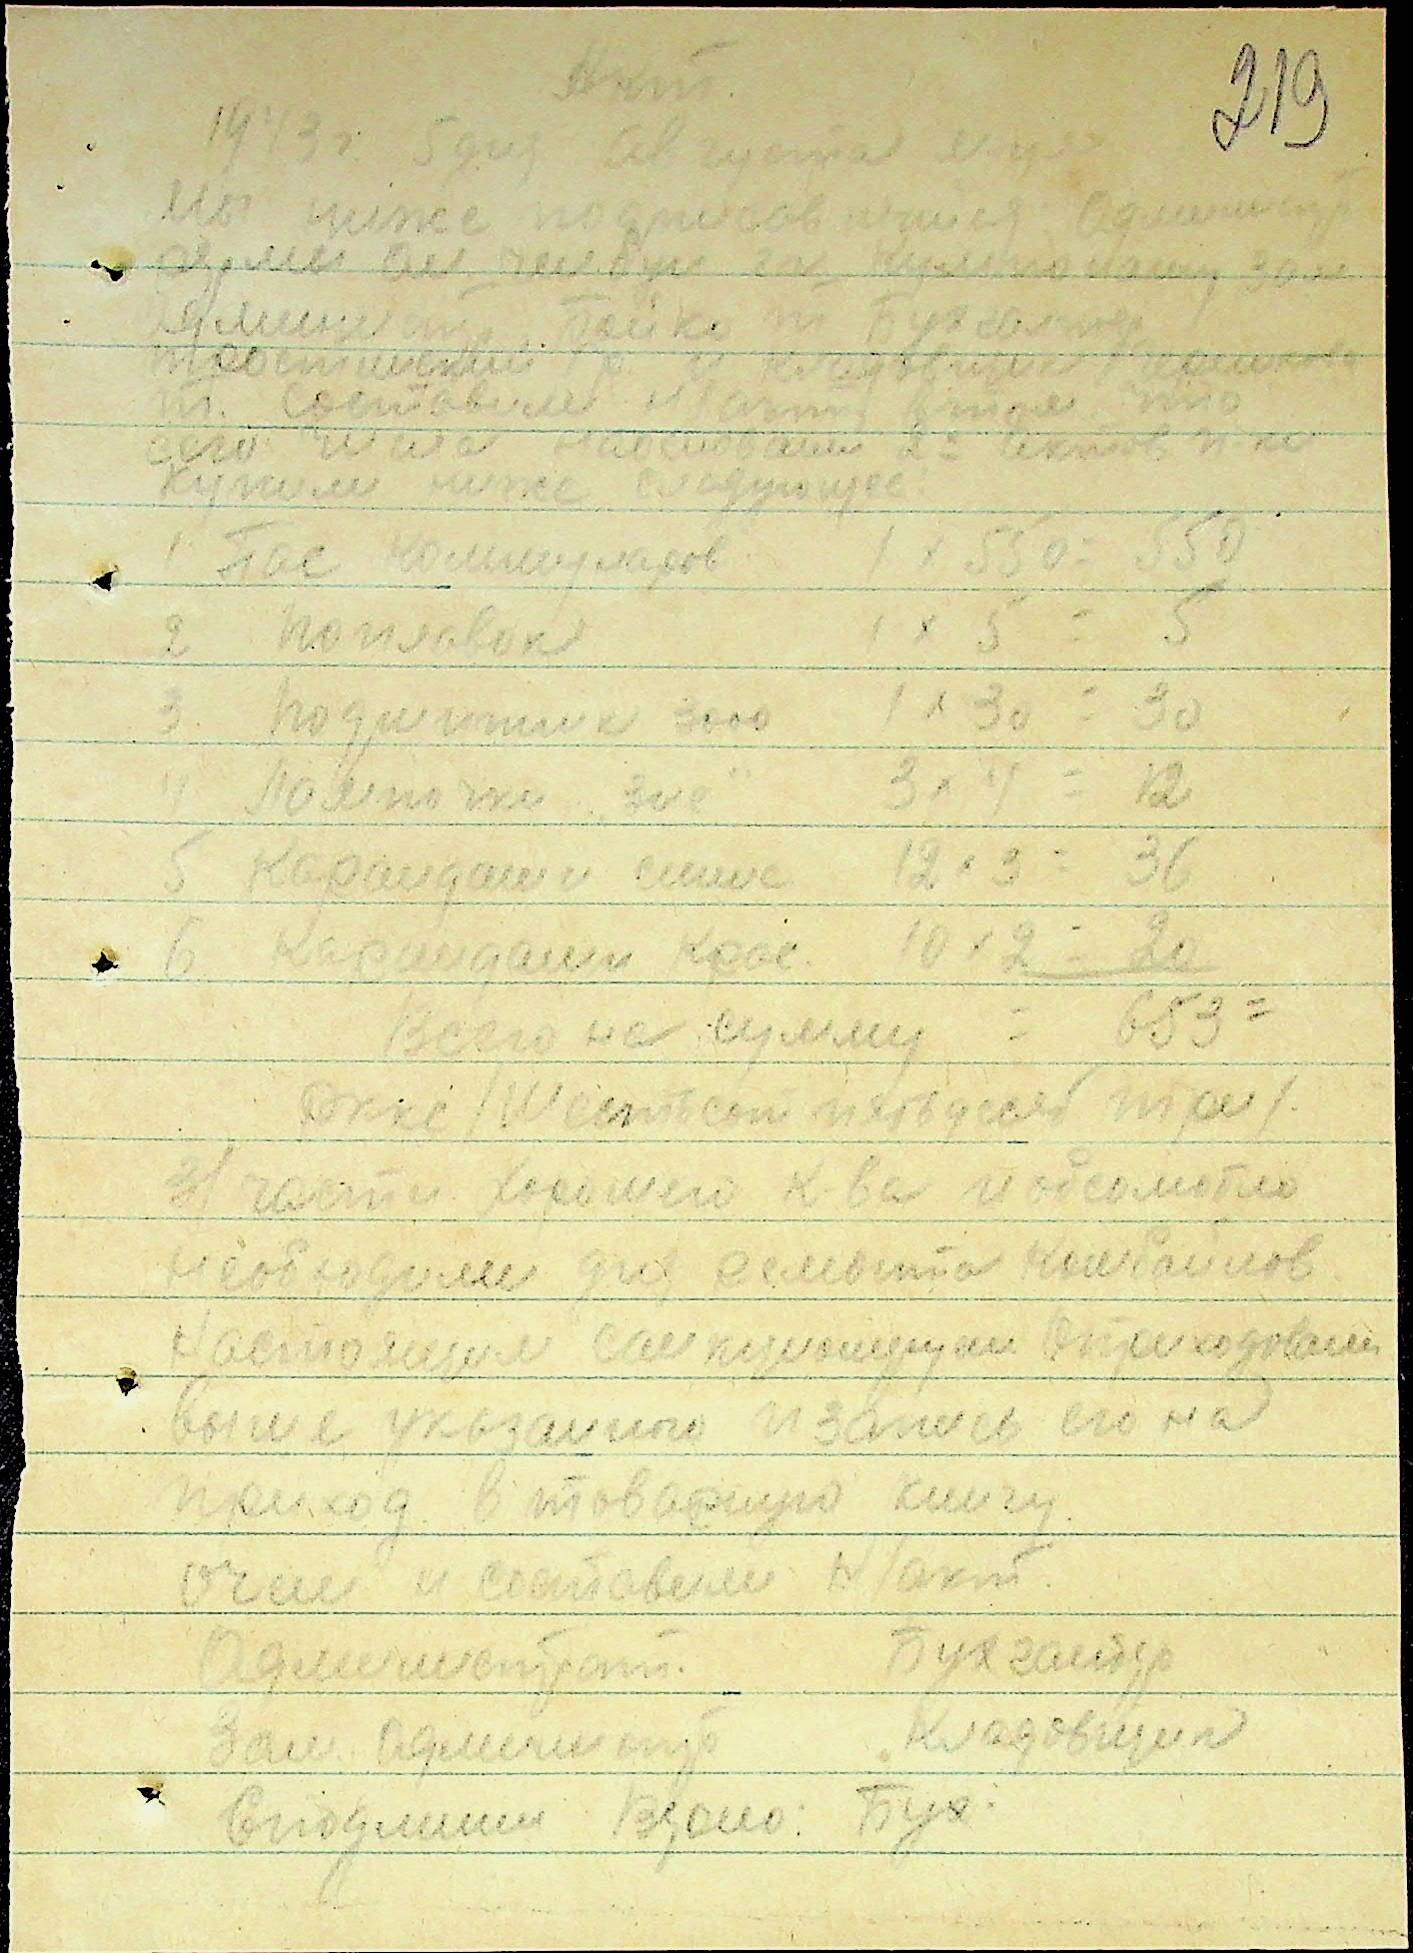 219
Акт.
1943 г. 5 дня августа м-ца
Мы ниже подписавшиеся Администр
зам
Администр Бойко т Бухгалтер
и кладовщик
т. составили н/акт втом что
сего числа наосновании 2= актов
купили ниже следующее:
1 Пас коммуляров 1 × 550 = 550
2 Поплавок 1 × 5 = 5
3. Подшипник 3000 1 × 30 = 30
4 Лампочки „зис" 3 × 4 = 12
5 Карандаши синие 12 × 3 = 36
6 Карандаши крас. 10 × 2 = 20
Всего на сумму = 653=
/Шестьсот пятьдесят три/.
З/части хорошего к-ва и
необходимы для ремонта комбайнов.
Настоящим оприходование
выше указанного и запись его на
приход в товарную книгу.
Очем и составили н/акт.
Администрат. Бухгалтер
Зам. Администр Кладовщик
Сподлинным Верно: Бух.